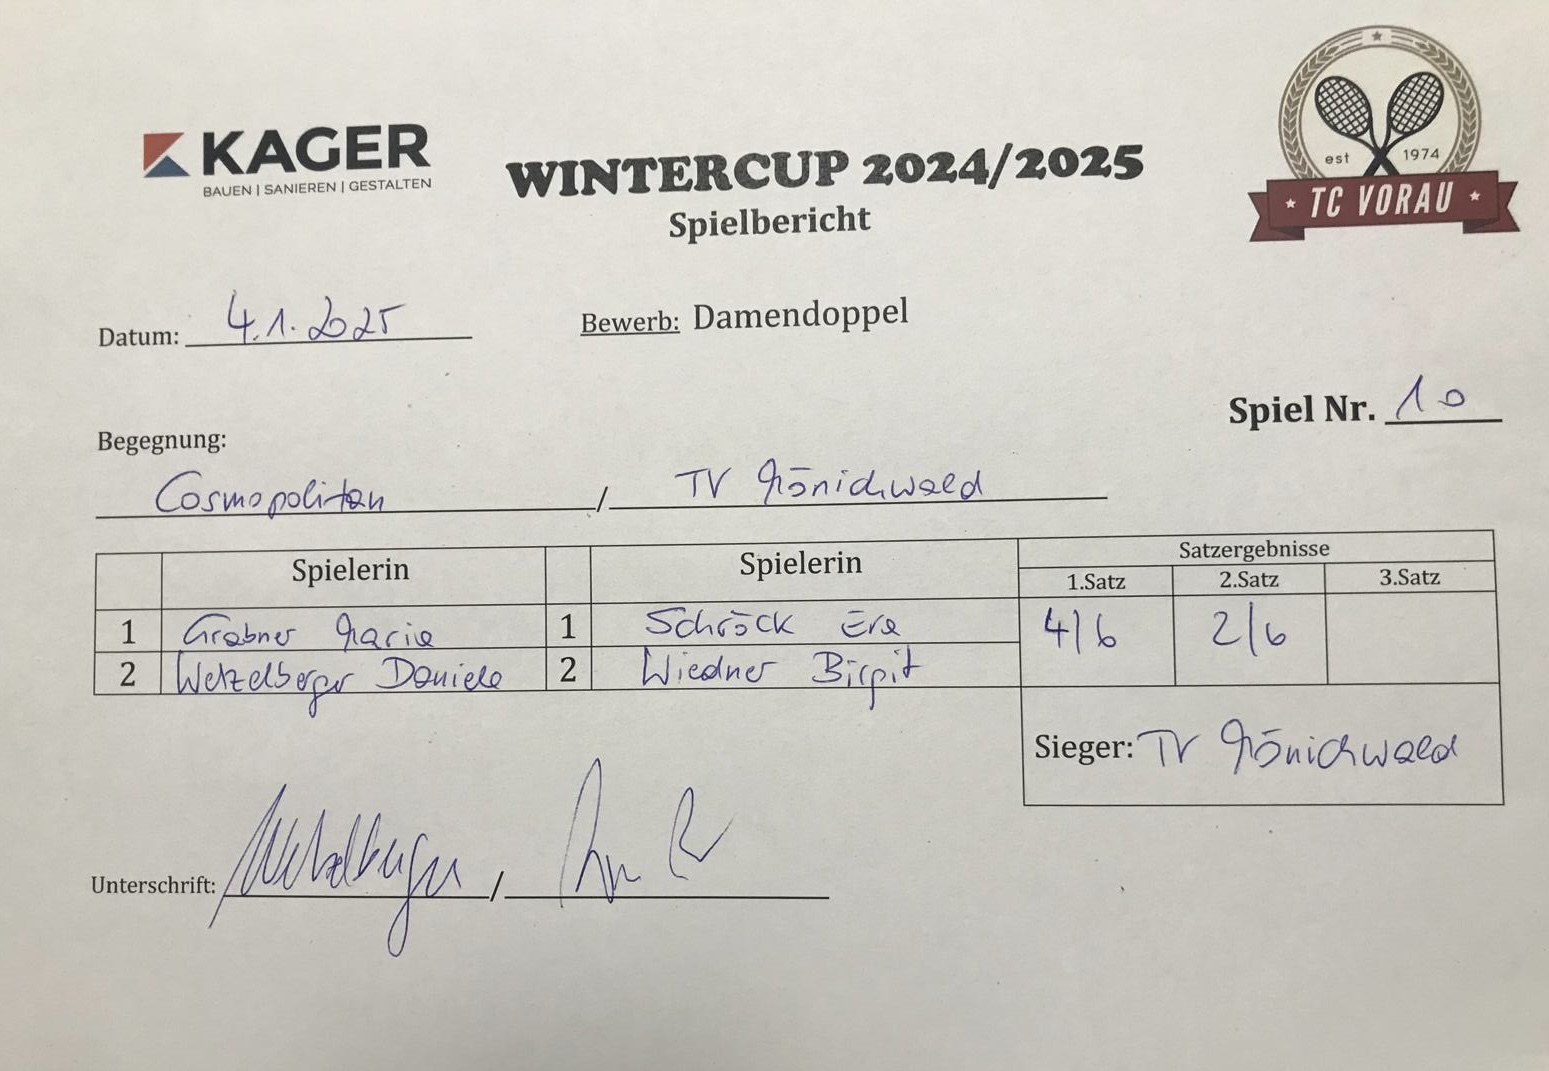 KAGER
BAUEN | SANIEREN | GESTALTEN
WINTERCUP 2024/2025
Spielbericht
est 1974
TC VORAU
Datum: 4.1.2025
Bewerb: Damendoppel
Spiel Nr. 10
Begegnung:
Cosmopolitan / TV Mönichwald
Spielerin Spielerin Satzergebnisse
1.Satz 2.Satz 3.Satz
1 Grabner Maria 1 Schröck Eva 4/6 2/6
2 Wetzelberger Daniela 2 Wiedner Birgit
Sieger: TV Mönichwald
Unterschrift: Wetzelberger /